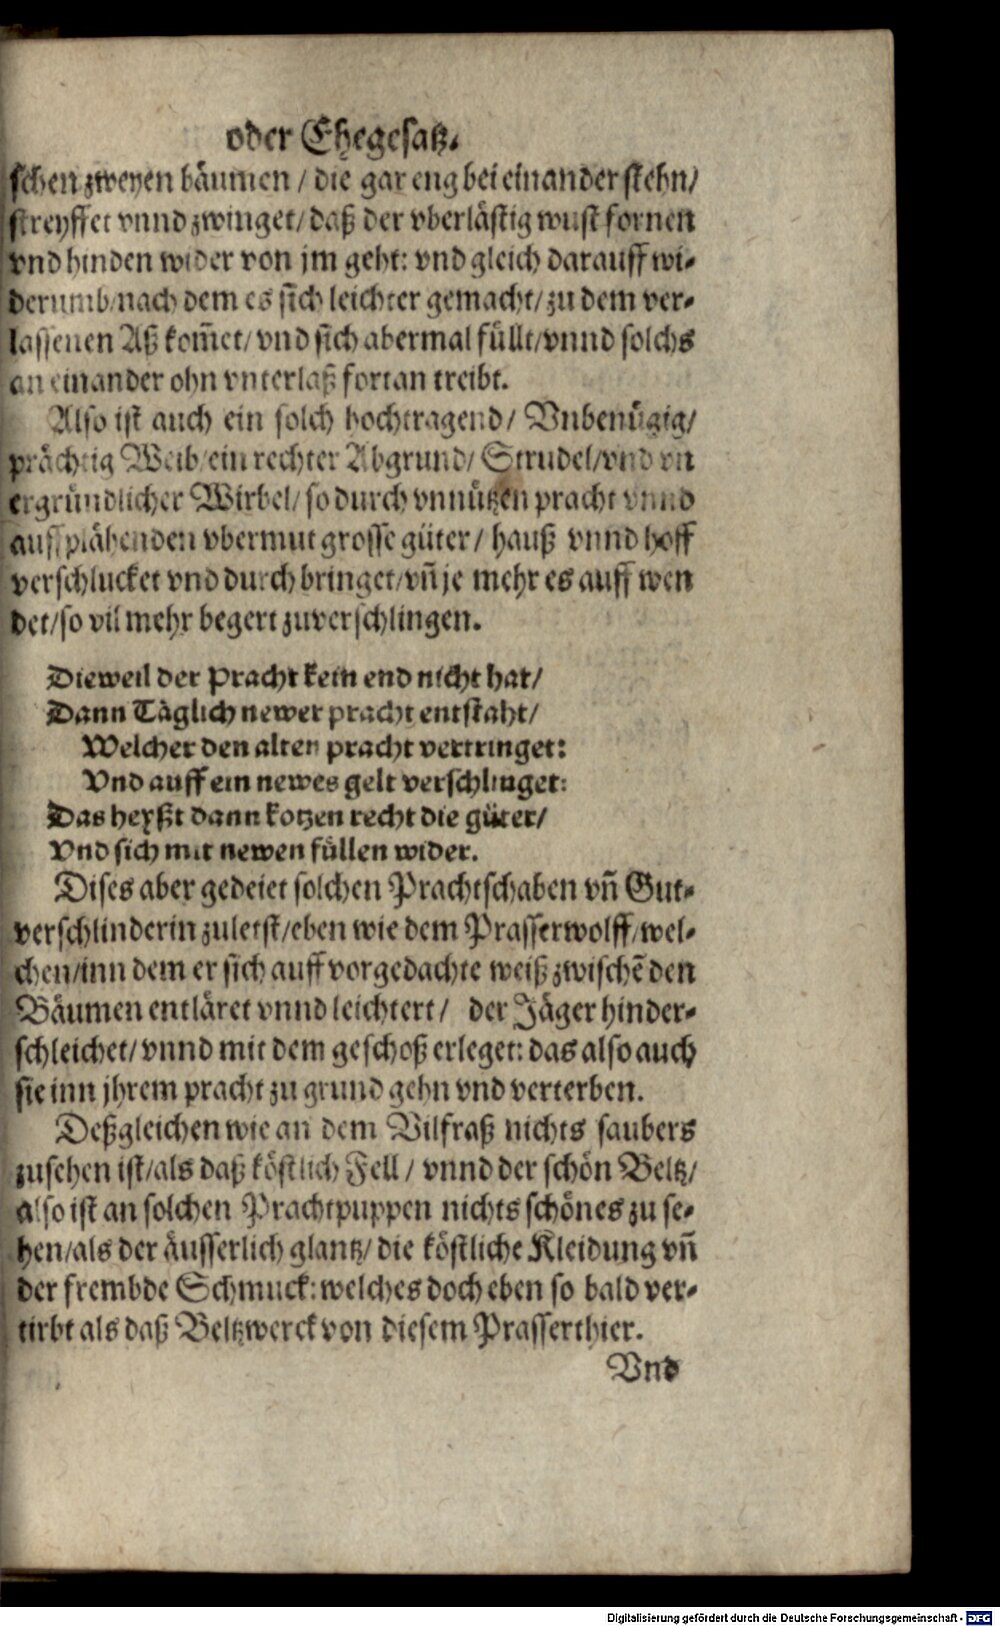 oder Ehegesatz.
schen zweyen bäumen / die gar eng bei einander stehn/
streyffet vnnd zwinget/ daß der vberlästig wust fornen
vnd hinden wider von jm geht: vnd gleich darauff wi-
derumb/ nach dem es sich leichter gemacht/ zu dem ver-
lassenen Aß kom̄et/ vnd sich abermal füllt/ vnnd solchs
an einander ohn vnterlaß fortan treibt.
Also ist auch ein solch hochtragend/ Vnbenügig/
prächtig Weib/ ein rechter Abgrund/ Strudel/ vnd vn
ergründlicher Wirbel/ so durch vnnützen pracht vnnd
auffplähenden vbermut grosse güter/ hauß vnnd hoff
verschlucket vnd durch bringet/ vn̄ je mehr es auff wen
det/ so vil mehr begert zuverschlingen.
Dieweil der Pracht kein end nicht hat/
Dann Täglich newer pracht entstaht/
Welcher den alten pracht vertringet:
Vnd auff ein newes gelt verschlinget:
Das heyßt dann kotzen recht die güter/
Vnd sich mit newen füllen wider.
Dises aber gedeiet solchen Prachtschaben vn̄ Gut-
verschlinderin zuletst/ eben wie dem Prasserwolff/ wel-
chen/ inn dem er sich auff vorgedachte weiß zwischē den
Bäumen entläret vnnd leichtert/ der Jäger hinder-
schleichet/ vnnd mit dem geschoß erleget: das also auch
sie inn jhrem pracht zu grund gehn vnd verterben.
Deßgleichen wie an dem Vilfraß nichts saubers
zusehen ist/ als daß köstlich Fell / vnnd der schön Beltz/
also ist an solchen Prachtpuppen nichts schönes zu se-
hen/ als der äusserlich glantz/ die köstliche Kleidung vn̄
der frembde Schmuck: welches doch eben so bald ver-
tirbt als daß Beltzwerck von diesem Prasserthier.
Vnd
Digitalisierung gefördert durch die Deutsche Forschungsgemeinschaft - DFG